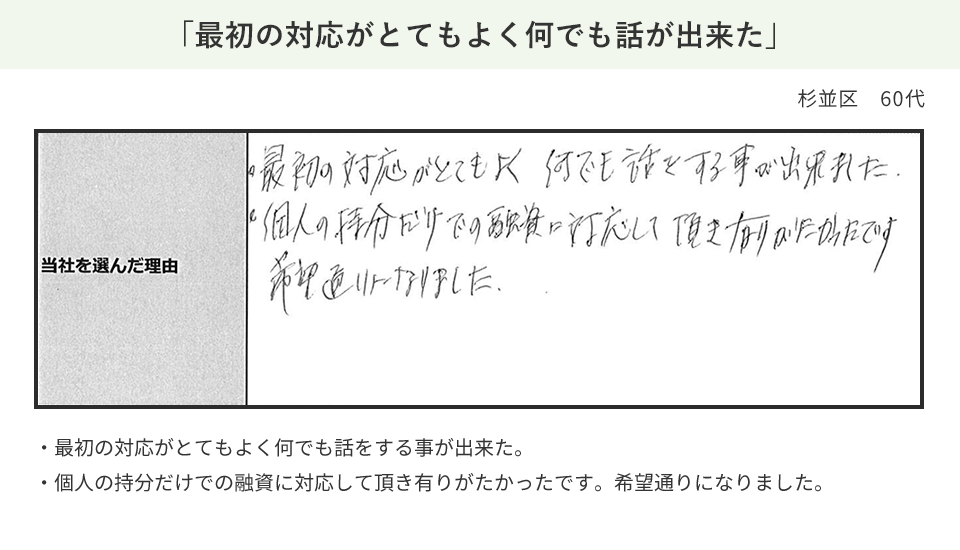 「最初の対応がとてもよく何でも話が出来た」
杉並区　60代
当社を選んだ理由
・最初の対応がとてもよく 何でも話をする事が出来ました.
・個人の持分だけでの融資に対応して頂き有りがたかったです
希望通りになりました.
・最初の対応がとてもよく何でも話をする事が出来た。
・個人の持分だけでの融資に対応して頂き有りがたかったです。希望通りになりました。